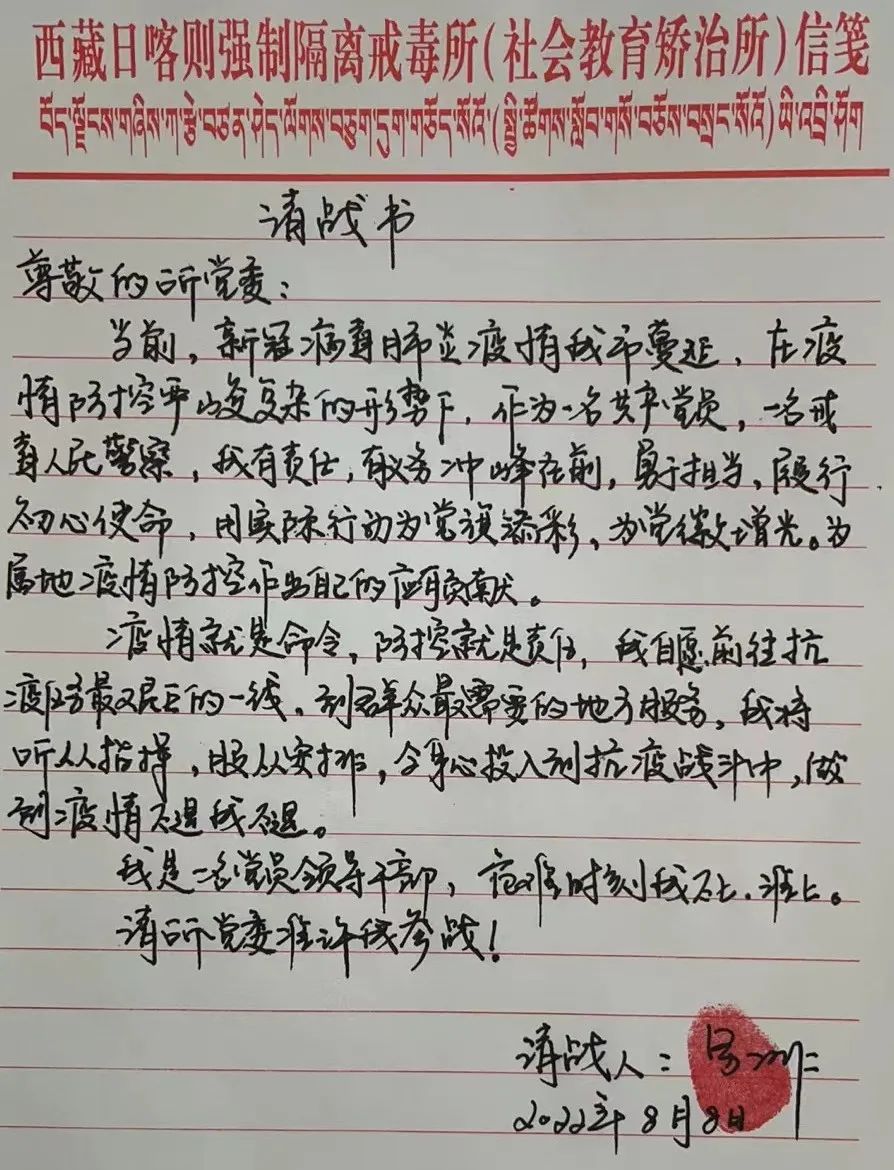 西藏日喀则强制隔离戒毒所(社会教育矫治所)信笺
བོད་ལྗོངས་གཞིས་ཀ་རྩེ་བཙན་ཤེད་ལོགས་བཅུག་དུག་གཅོད་སོའོ་(སྤྱི་ཚོགས་སློབ་གསོ་བཅོས་བསྲང་སོའོ)ཡི་འབྲི་ཤོག
请战书
尊敬的所党委：
当前，新冠病毒肺炎疫情我市蔓延，在疫
情防控严峻复杂的形势下，作为一名共产党员，一名戒
毒人民警察，我有责任，有义务冲峰在前，勇于担当，履行
初心使命，用实际行动为党旗添彩，为党徽增光。为
属地疫情防控作出自己的应有贡献。
疫情就是命令，防控就是责任，我自愿前往抗
疫任务最艰巨的一线，到群众最需要的地方服务，我将
听从指挥，服从安排，全身心投入到抗疫战斗中，做
到疫情不退我不退。
我是一名党员领导干部，危难时刻我不上.谁上。
请所党委准许我参战！
请战人：
2022年8月8日